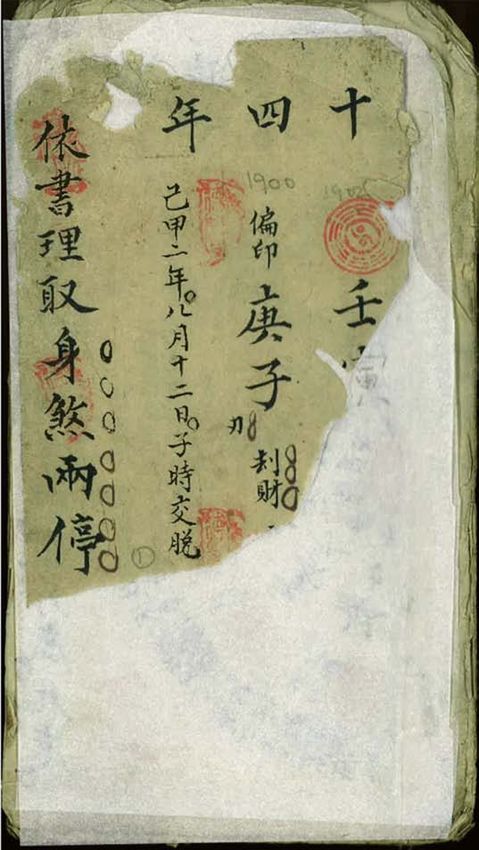 十
1902
壬寅
四
1900
偏印
庚子
刃
刦財
年
己甲二年八月十二日子時交脫
①
依書理取身煞兩停